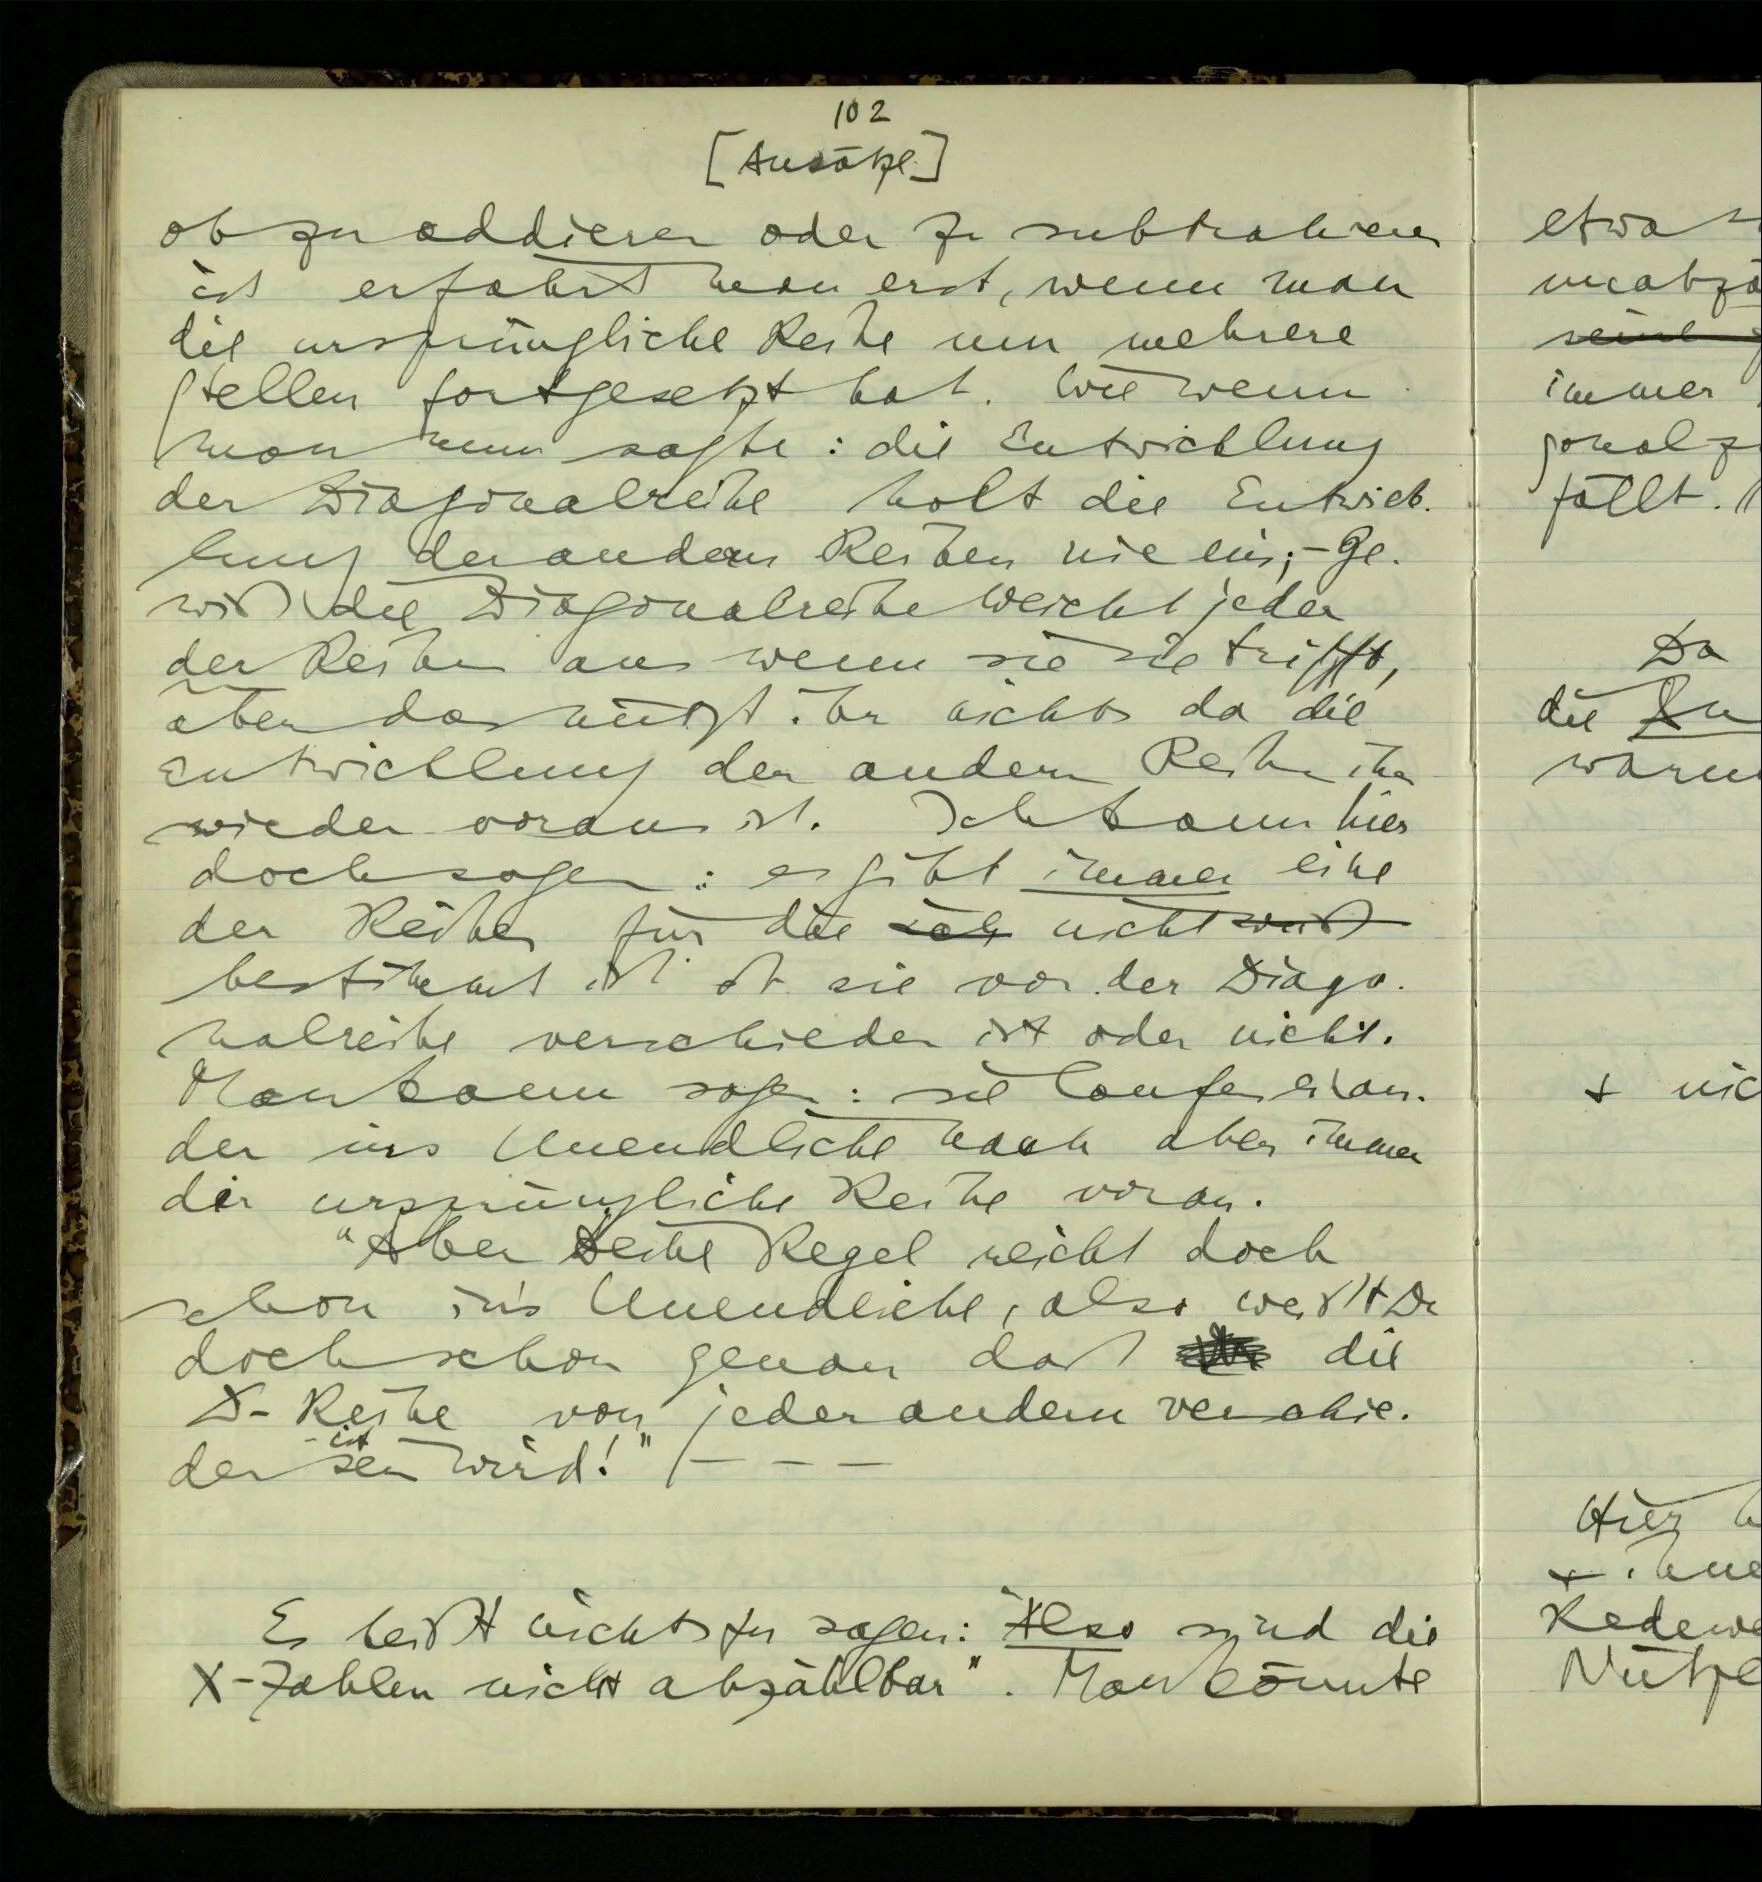 102
[Ansätze]
ob zu addieren oder zu subtrahieren
ist erfährt man erst, wenn man
die ursprüngliche Reihe um mehrere
Stellen fortgesetzt hat. Wie wenn
man nun sagte: die Entwicklung
der Diagonalreihe holt die Entwick-
lung der andern Reihen nie ein; – Ge-
wiß die Diagonalreihe weicht jeder
der Reihen aus wenn sie sie trifft,
aber das nützt ihr nichts da die
Entwicklung der andern Reihe ihr
wieder voraus ist. Ich kann hier
doch sagen: es gibt immer eine
der Reihen für die ich nicht weiß
bestimmt ist ob sie von der Diago-
nalreihe verschieden ist oder nicht.
Man kann sagen: sie laufen einan-
der ins Unendliche nach aber immer
die ursprüngliche Reihe voran.
"Aber Deine Regel reicht doch
schon in's Unendliche, also weißt Du
doch schon genau daß die
D-Reihe von jeder andern verschie-
den ist sein wird!" – – –
Es heißt nichts zu sagen: "Also sind die
X-Zahlen nicht abzählbar". Man könnte
etwa
unabzä
seine
immer
gonalz
fällt.
Da
die
waru
+ nic
Hier
Redewe
Nütze